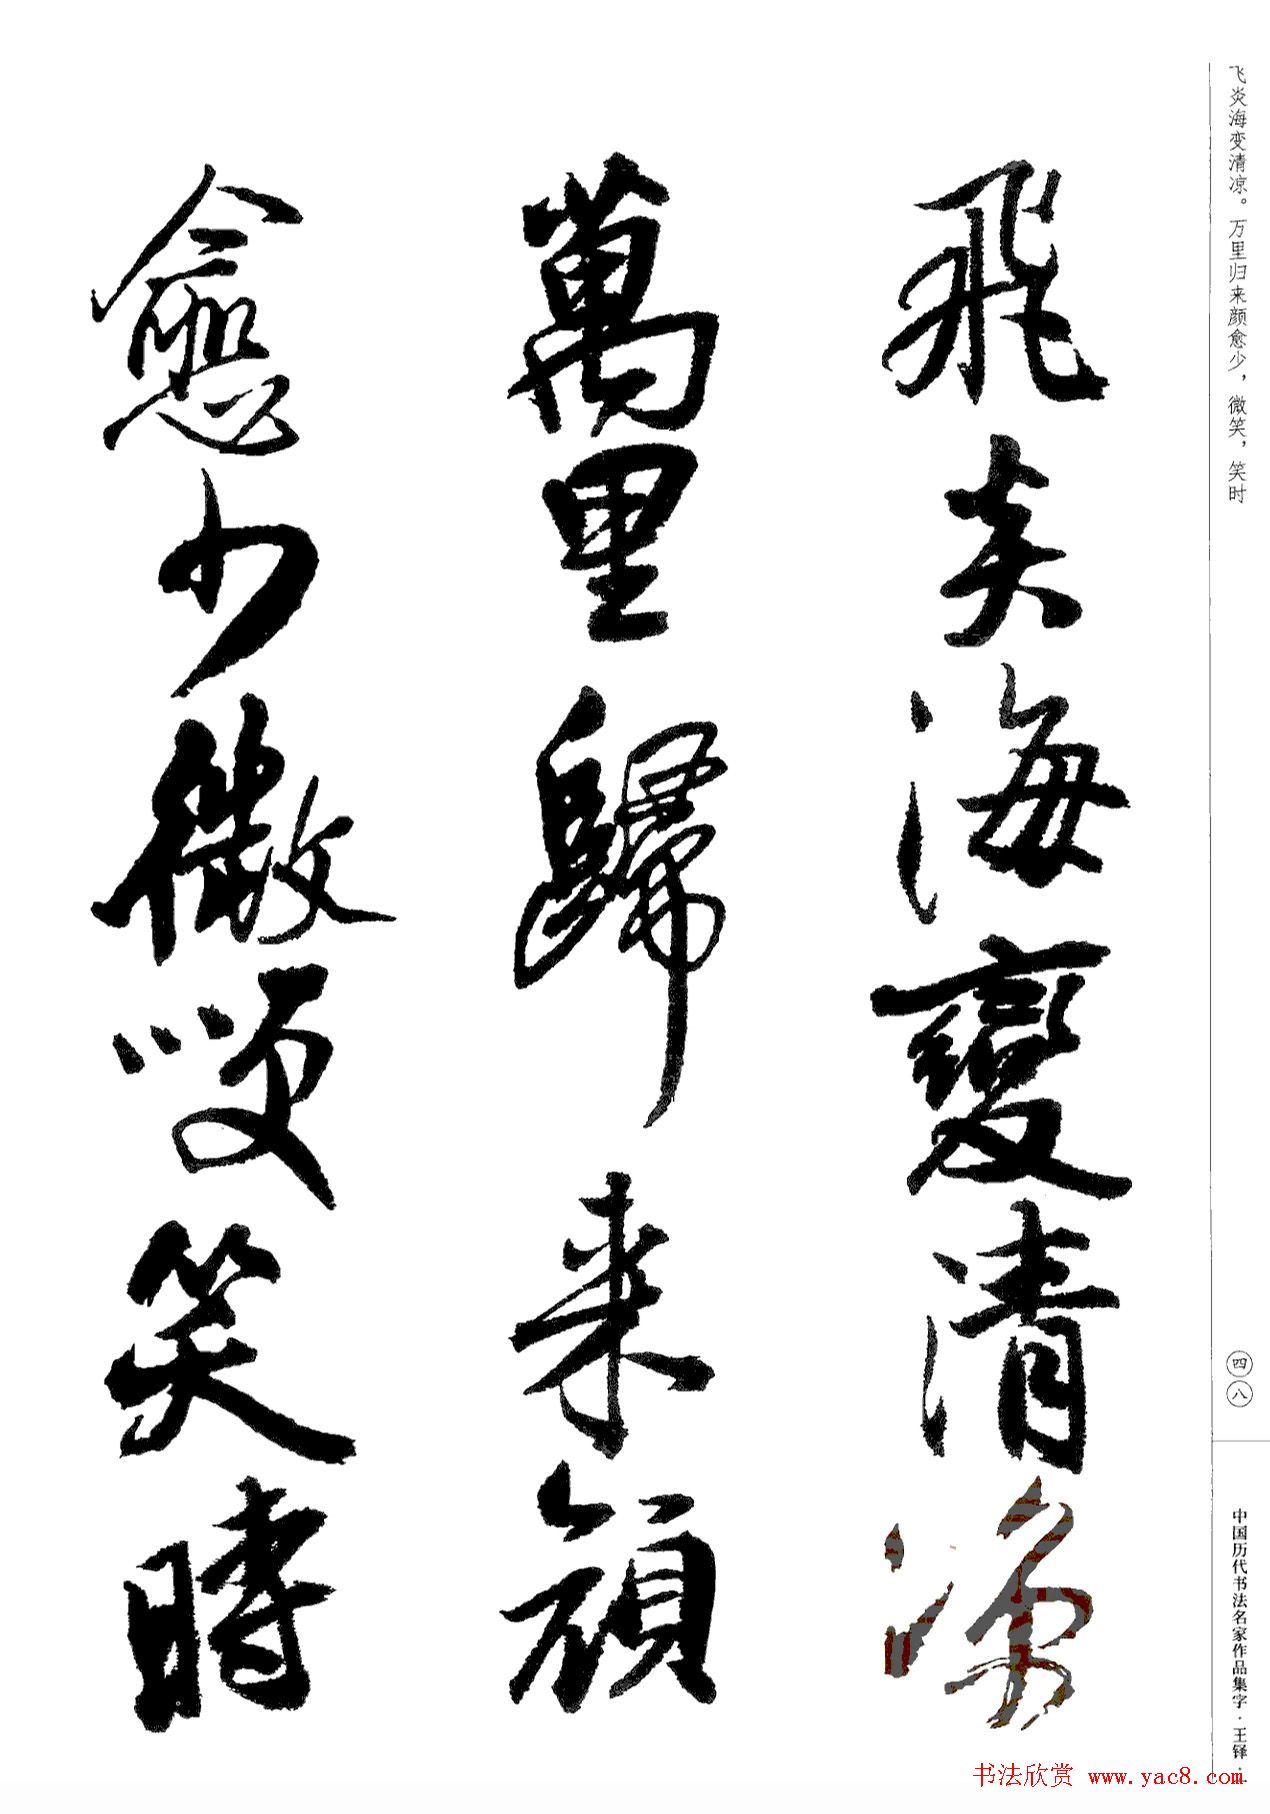 飞炎海变清凉。万里归来颜愈少，微笑，笑时
飛炎海變清凉
萬里歸来顔
愈少微笑笑時
四八
中国历代书法名家作品集字·王铎·
书法欣赏 www.yac8.com